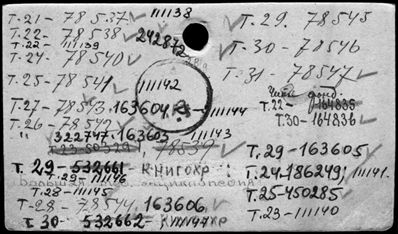 Т.21- 78537 ✓ 111138
Т.22- 78538 ✓ 242872
Т.22- 111139
Т.24- 78540 ✓
Т.25- 78541 ✓ 111142
Т.27- 78543 163604 111144
Т.26- 78542 163603 111143
" 322747
Т.23-50329 78539 ✓
Т. 29 - 532661 - Книгохр :
Т.29- 111146
Т.28- 111145
Т-28- 78544 163606
Т- 30- 532662 111147
Т.29. 78545
Т-30- 78546
Т-31- 78547 ✓
Чит. фонд.
Т.22- 164835
Т.30- 164836 ✓
Т.29-163605 ✓
Т.24-186249; 111141.
Т.25-450285 ✓
Т.23-111140